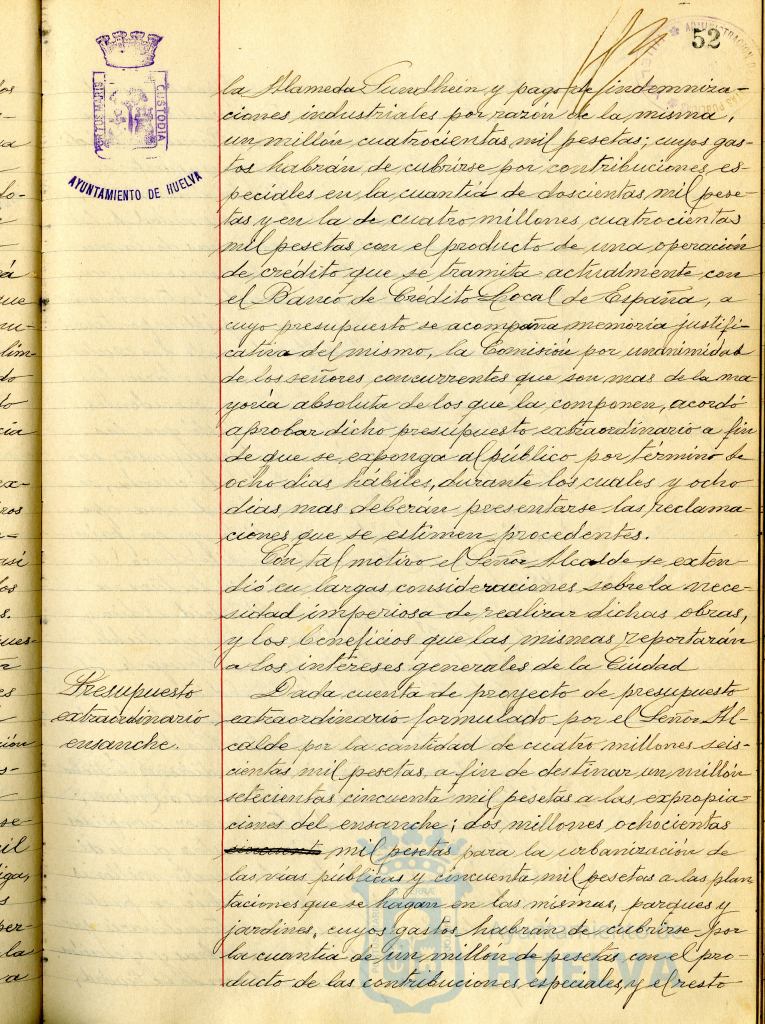 52
PORTUS MARIS
CUSTODIA
AYUNTAMIENTO DE HUELVA
la Alameda Sundhein y pago de indemniza-
ciones industriales por razón de la misma,
un millón cuatrocientas mil pesetas; cuyos gas-
tos habrán de cubrirse por contribuciones es-
peciales en la cuantía de doscientas mil pese-
tas y en la de cuatro millones cuatrocientas
mil pesetas con el producto de una operación
de crédito que se tramita actualmente con
el Banco de Crédito Local de España, a
cuyo presupuesto se acompaña memoria justifi-
cativa del mismo, la Comisión por unanimidad
de los señores concurrentes que son mas de la ma
yoría absoluta de los que la componen, acordó
aprobar dicho presupuesto extraordinario a fin
de que se exponga al público por término de
ocho dias hábiles, durante los cuales y ocho
dias mas deberán presentarse las reclama-
ciones que se estimen procedentes.
Con tal motivo el Señor Alcalde se exten-
dió en largas consideraciones sobre la nece-
sidad imperiosa de realizar dichas obras,
y los beneficios que las mismas reportarán
a los intereses generales de la Ciudad
Presupuesto
extraordinario
ensanche.
Dada cuenta de proyecto de presupuesto
extraordinario formulado por el Señor Al-
calde por la cantidad de cuatro millones seis-
cientas mil pesetas, a fin de destinar un millón
setecientas cincuenta mil pesetas a las expropia-
ciones del ensanche; dos millones ochocientas
mil pesetas para la urbanización de
las vias públicas y cincuenta mil pesetas a las plan
taciones que se hagan en las mismas, parques y
jardines, cuyos gastos habrán de cubrirse por
la cuantía de un millón de pesetas con el pro-
ducto de las contribuciones especiales, y el resto
Ayuntamiento de
HUELVA